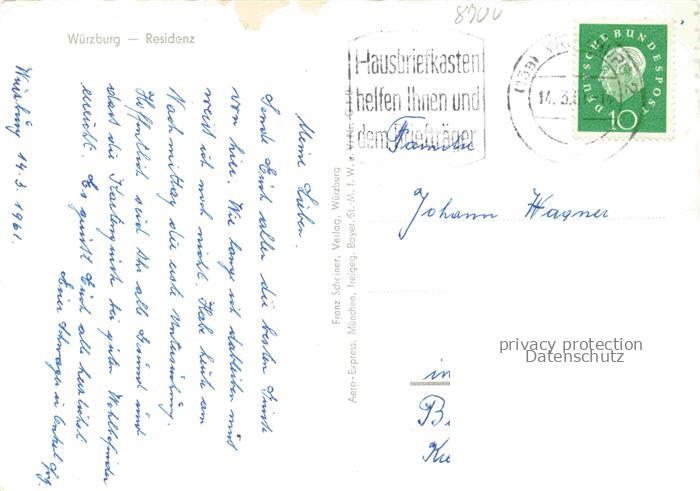 8700
Würzburg — Residenz
Würzburg 14.3.1961.
Meine Lieben.
Sende Euch allen die besten Grüße
von hier. Wie lange ich dableiben muß
weiß ich noch nicht. Habe heute am
Nachmittag die erste Untersuchung.
Hoffentlich seid Ihr alle Gesund und
daß die Karte Euch bei guten Wohlbefinden
erreicht. Es grüßt Euch alle herzlichst
Euer Schwager u. Onkel
Franz Scheiner, Verlag, Würzburg
Aero-Express, München, freigeg. Bayer. St. M. f. W. u. V. Nr. G
Hausbriefkasten
helfen Ihnen und
dem Briefträger
14.3.61
DEUTSCHE BUNDESPOST
10
Familie
Johann Wagner
in
privacy protection
Datenschutz